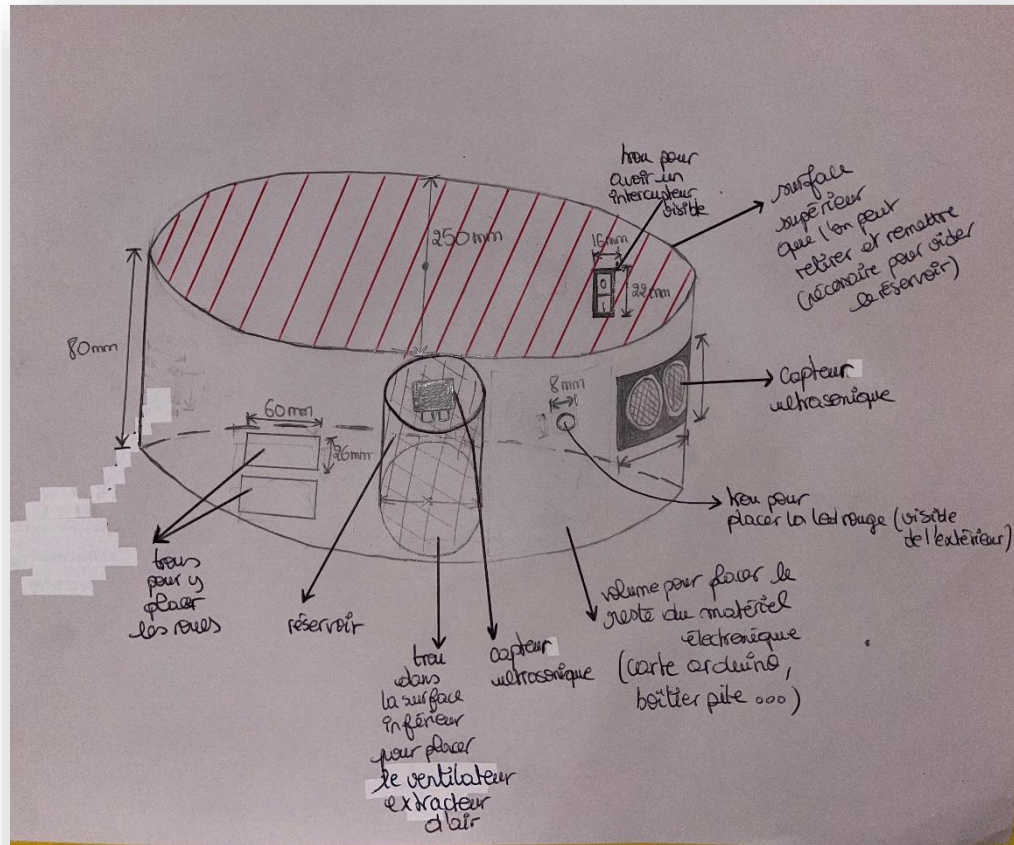 trou pour
avoir un
interrupteur
visible
surface
supérieur
que l'on peut
retirer et remettre
(nécessaire pour vider
le réservoir)
250mm
16mm
0
1
22mm
80mm
8mm
capteur
ultrasonique
60mm
26mm
trou pour
placer la led rouge (visible
de l'extérieur)
trous
pour y
placer
les roues
réservoir
trou
dans
la surface
inférieur
pour placer
le ventilateur
extracteur
d'air
capteur
ultrasonique
volume pour placer le
reste du matériel
électronique
(carte arduino,
boîtier pile ...)